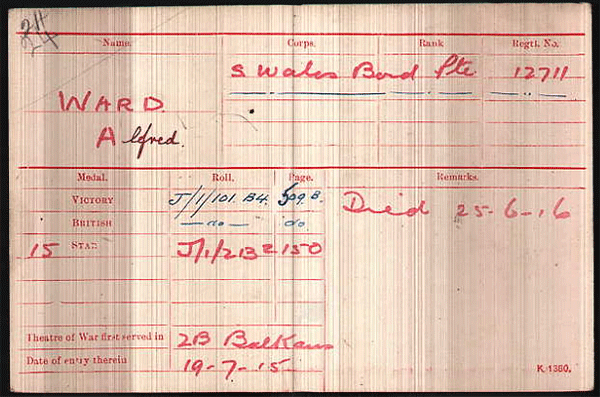 24
Name. Corps. Rank Regtl. No.
S Wales Bord Pte 12711
WARD
Alfred.
Medal. Roll. Page. Remarks.
VICTORY J/1/101. B4. 509. B. Died 25-6-16
BRITISH — do — do
15 STAR J/1/2B2 150
Theatre of War first served in 2B Balkans
Date of entry therein 19-7-15.
K 1380.